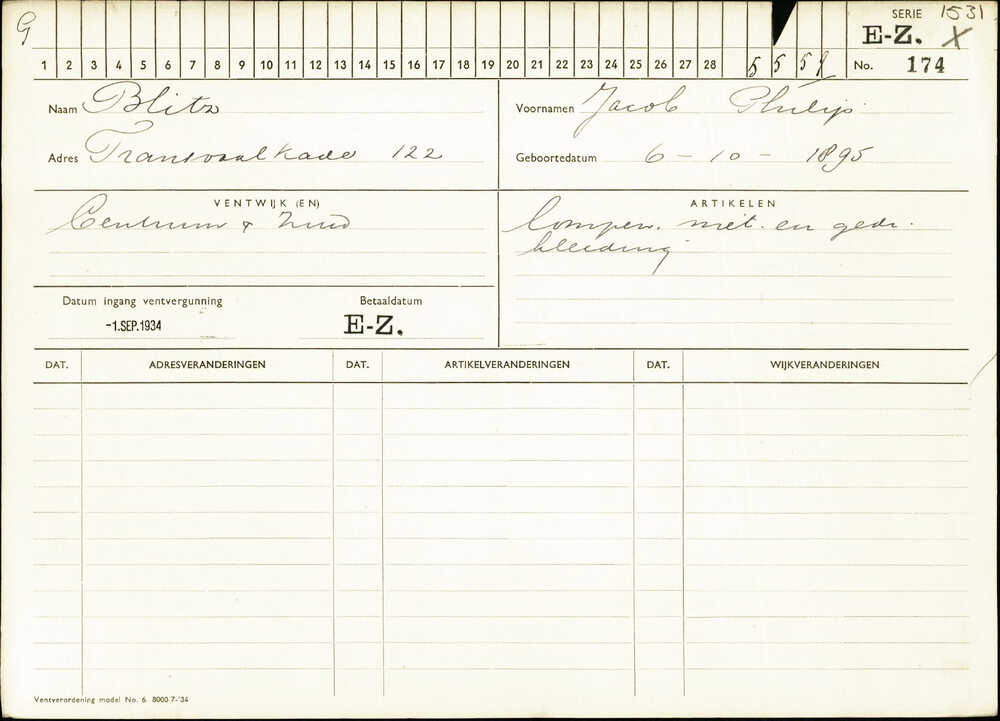 G
SERIE 1531
E-Z. X
1 2 3 4 5 6 7 8 9 10 11 12 13 14 15 16 17 18 19 20 21 22 23 24 25 26 27 28 5 5 5 No. 174
Naam Blitz
Voornamen Jacob Philip
Adres Transvaalkade 122
Geboortedatum 6-10-1895
VENTWIJK (EN)
Centrum & Zuid
ARTIKELEN
lompen. met. en gedr.
kleeding
Datum ingang ventvergunning
-1.SEP.1934
Betaaldatum
E-Z.
DAT. ADRESVERANDERINGEN DAT. ARTIKELVERANDERINGEN DAT. WIJKVERANDERINGEN
Ventverordening model No. 6 8000 7-'34